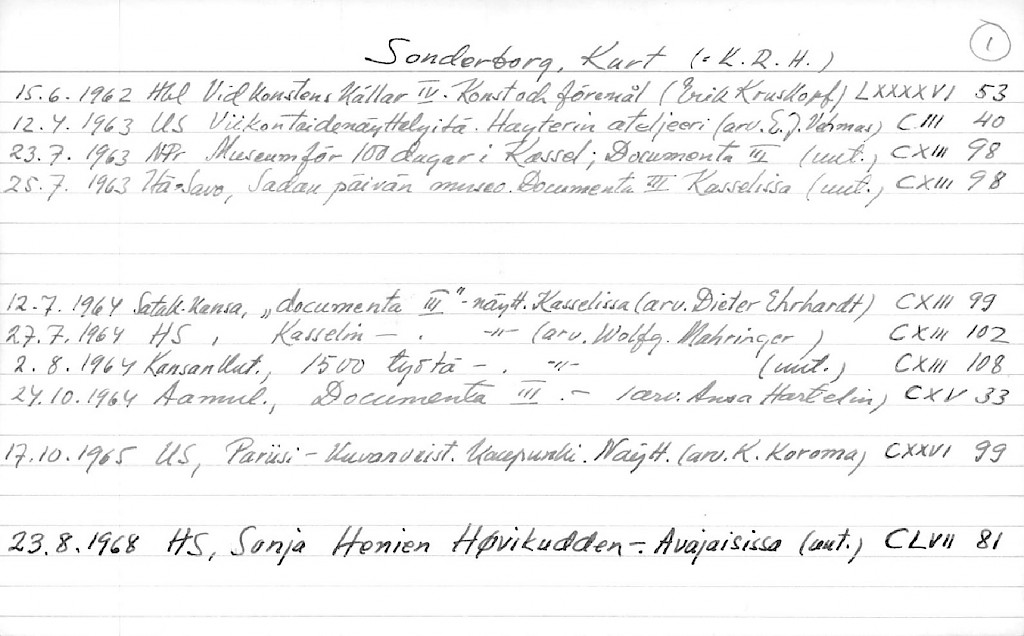 1
Sonderborg, Kurt (= K. R. H.)
15.6.1962 Hbl Vid konstens källar IV. Konst och föremål (Erik Kruskopf) LXXXXVI 53
12.4.1963 US Viikon taidenäyttelyitä. Hayterin ateljeeri (arv. E. J. Vehmas) CIII 40
23.7.1963 NPr Museum för 100 dagar i Kassel; Documenta III (uut.) CXIII 98
25.7.1963 Itä-Savo, Sadan päivän museo. Documenta III Kasselissa (uut.) CXIII 98
12.7.1964 Satak. Kansa, „documenta III"-näytt. Kasselissa (arv. Dieter Ehrhardt) CXIII 99
27.7.1964 HS, Kasselin - . -"- (arv. Wolfg. Mahringer) CXIII 102
2.8.1964 Kansan Uut., 1500 työtä - . -"- (uut.) CXIII 108
24.10.1964 Aamul., Documenta III .- (arv. Ansa Hartelin) CXV 33
17.10.1965 US, Pariisi - Kuvanveist. Kaupunki. Näytt. (arv. K. Koroma) CXXVI 99
23.8.1968 HS, Sonja Henien Høvikudden -. Avajaisissa (uut.) CLVII 81